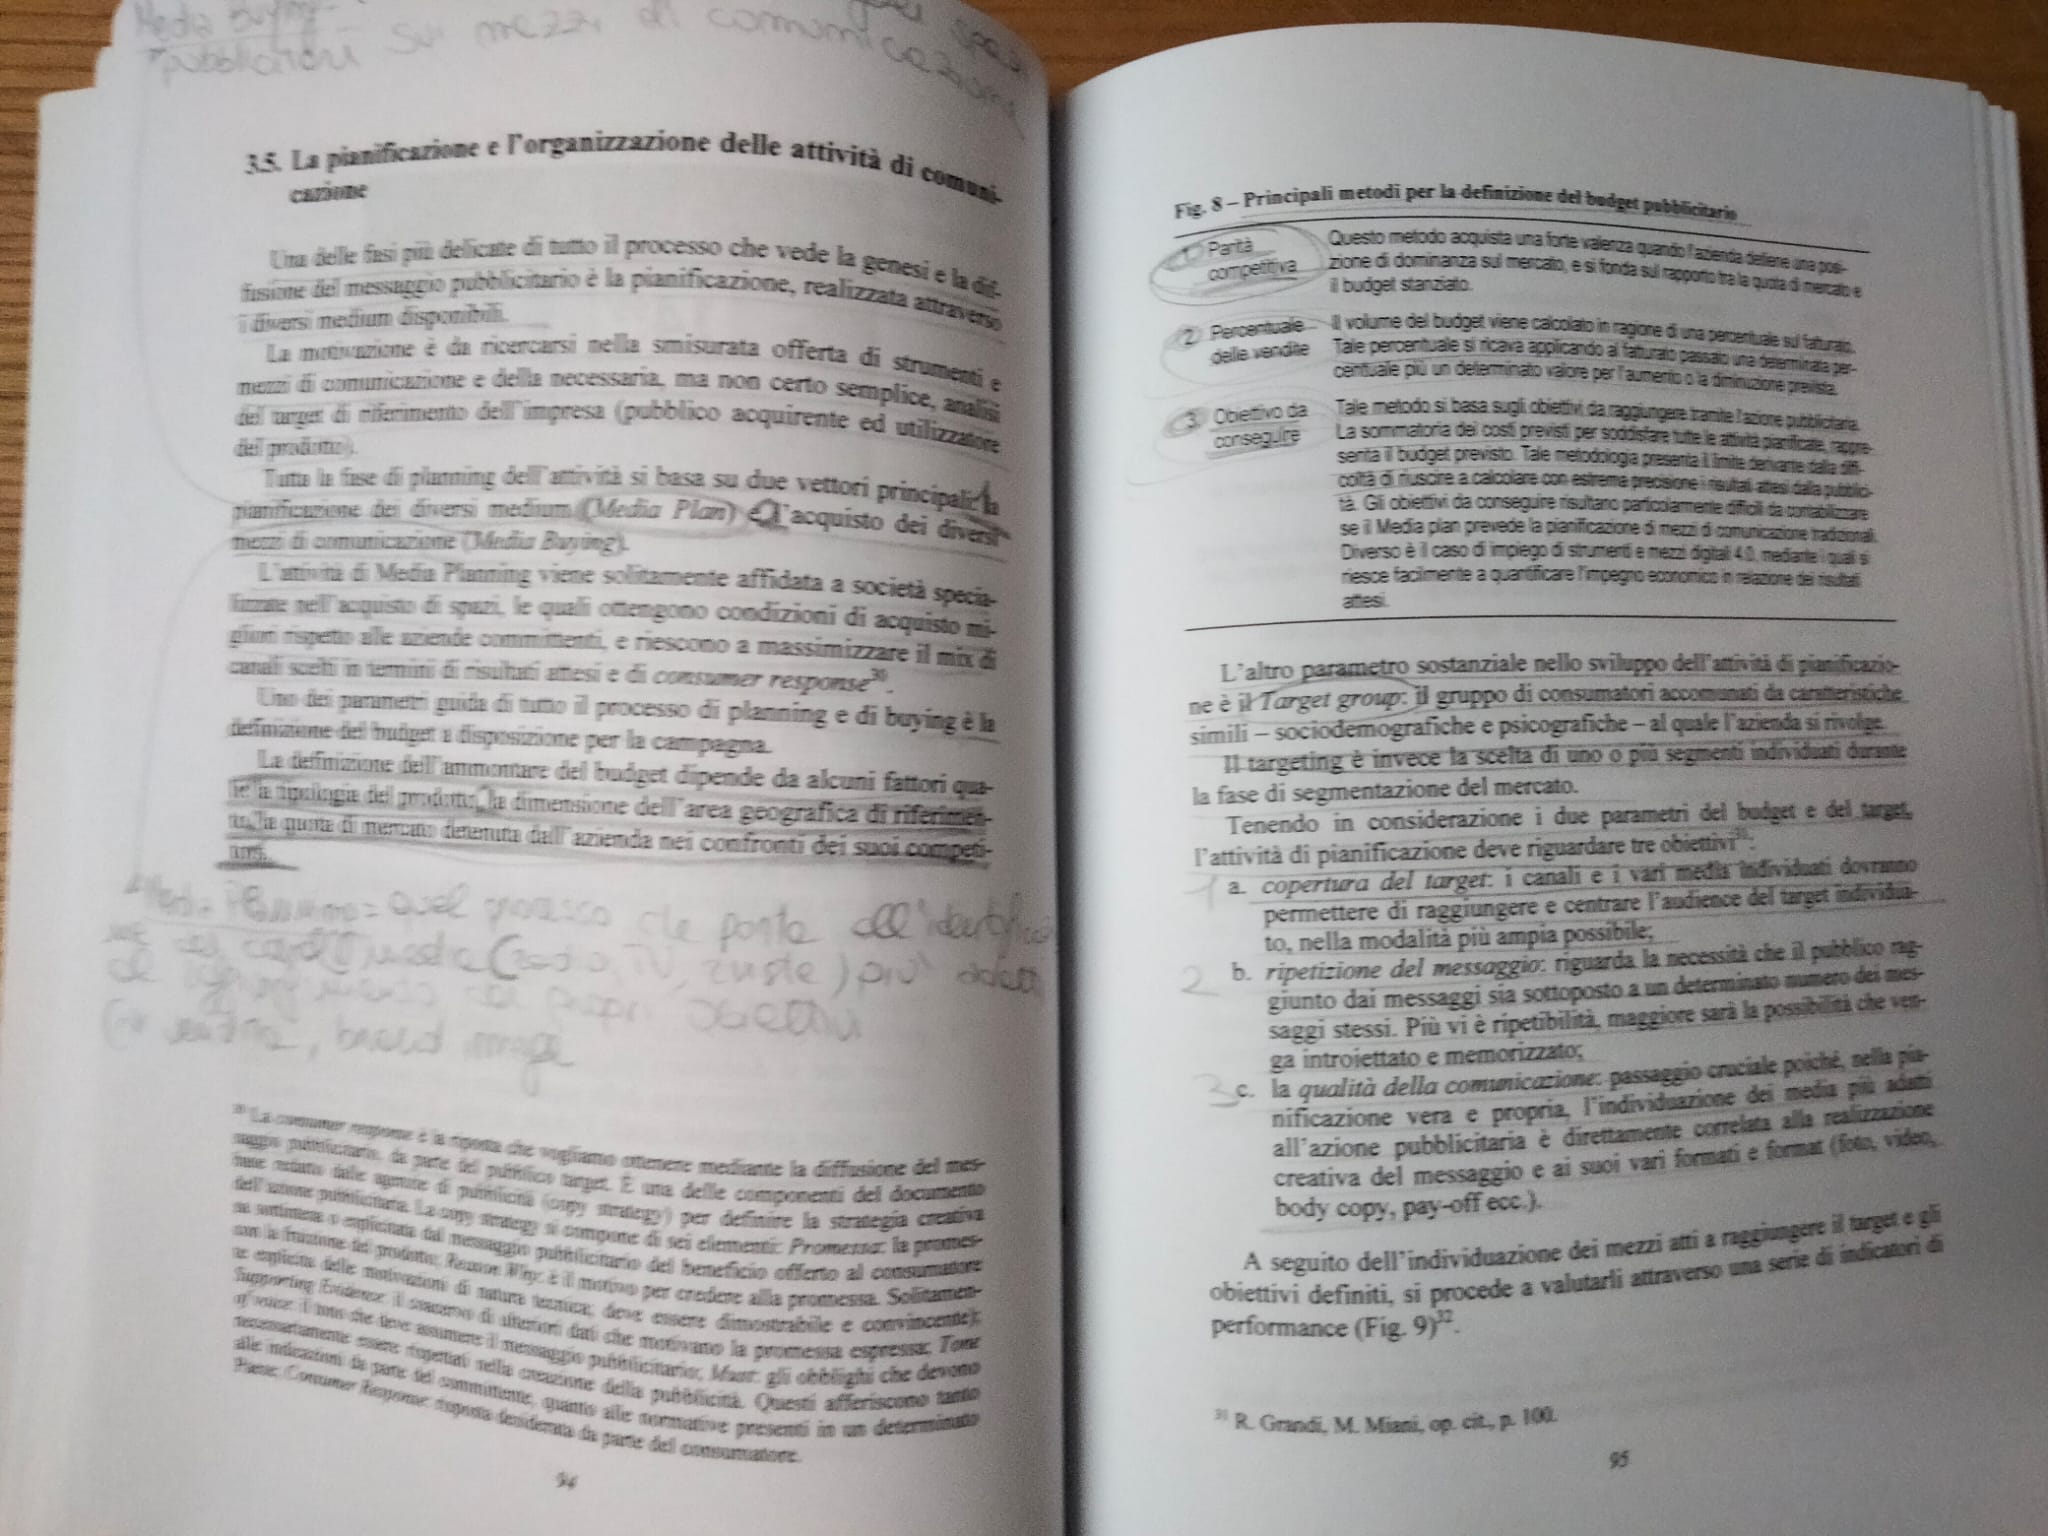 Media Buying
pubblicitari sui mezzi di comunicazione
3.5. La pianificazione e l'organizzazione delle attività di comuni-
cazione
Una delle fasi più delicate di tutto il processo che vede la genesi e la dif-
fusione del messaggio pubblicitario è la pianificazione, realizzata attraverso
i diversi medium disponibili.
La motivazione è da ricercarsi nella smisurata offerta di strumenti e
mezzi di comunicazione e della necessaria, ma non certo semplice, analisi
del target di riferimento dell'impresa (pubblico acquirente ed utilizzatore
del prodotto).
Tutta la fase di planning dell'attività si basa su due vettori principali: la
pianificazione dei diversi medium (Media Plan) e l'acquisto dei diversi
mezzi di comunicazione (Media Buying).
L'attività di Media Planning viene solitamente affidata a società specia-
lizzate nell'acquisto di spazi, le quali ottengono condizioni di acquisto mi-
gliori rispetto alle aziende committenti, e riescono a massimizzare il mix di
canali scelti in termini di risultati attesi e di consumer response30.
Uno dei parametri guida di tutto il processo di planning e di buying è la
definizione del budget a disposizione per la campagna.
La definizione dell'ammontare del budget dipende da alcuni fattori qua-
li: la tipologia del prodotto, la dimensione dell'area geografica di riferimen-
to, la quota di mercato detenuta dall'azienda nei confronti dei suoi competi-
tors.
Media Planning = quel processo che porta all'identific
media (radio, TV, riviste) più adatti
propri obiettivi
vendite, brand image
30 La consumer response è la risposta che vogliamo ottenere mediante la diffusione del mes-
saggio pubblicitario, da parte del pubblico target. È una delle componenti del documento
base redatto dalle agenzie di pubblicità (copy strategy) per definire la strategia creativa
dell'azione pubblicitaria. La copy strategy si compone di sei elementi: Promessa: la promes-
sa sottintesa o esplicitata dal messaggio pubblicitario del beneficio offerto al consumatore
con la fruizione del prodotto; Reason Why: è il motivo per credere alla promessa. Solitamen-
te esplicita delle motivazioni di natura tecnica; deve essere dimostrabile e convincente);
Supporting Evidence: il sostegno di ulteriori dati che motivano la promessa espressa; Tone
of voice: il tono che deve assumere il messaggio pubblicitario; Must: gli obblighi che devono
necessariamente essere rispettati nella creazione della pubblicità. Questi afferiscono tanto
alle indicazioni da parte del committente, quanto alle normative presenti in un determinato
Paese; Consumer Response: risposta desiderata da parte del consumatore.
94
Fig. 8 – Principali metodi per la definizione del budget pubblicitario
1. Parità competitiva Questo metodo acquista una forte valenza quando l'azienda detiene una posi-
zione di dominanza sul mercato, e si fonda sul rapporto tra la quota di mercato e
il budget stanziato.
2. Percentuale delle vendite Il volume del budget viene calcolato in ragione di una percentuale sul fatturato.
Tale percentuale si ricava applicando al fatturato passato una determinata per-
centuale più un determinato valore per l'aumento o la diminuzione prevista.
3. Obiettivo da conseguire Tale metodo si basa sugli obiettivi da raggiungere tramite l'azione pubblicitaria.
La sommatoria dei costi previsti per soddisfare tutte le attività pianificate, rappre-
senta il budget previsto. Tale metodologia presenta il limite derivante dalla diffi-
coltà di riuscire a calcolare con estrema precisione i risultati attesi dalla pubblici-
tà. Gli obiettivi da conseguire risultano particolarmente difficili da contabilizzare
se il Media plan prevede la pianificazione di mezzi di comunicazione tradizionali.
Diverso è il caso di impiego di strumenti e mezzi digitali 4.0, mediante i quali si
riesce facilmente a quantificare l'impegno economico in relazione dei risultati
attesi.
L'altro parametro sostanziale nello sviluppo dell'attività di pianificazio-
ne è il Target group: il gruppo di consumatori accomunati da caratteristiche
simili – sociodemografiche e psicografiche – al quale l'azienda si rivolge.
Il targeting è invece la scelta di uno o più segmenti individuati durante
la fase di segmentazione del mercato.
Tenendo in considerazione i due parametri del budget e del target,
l'attività di pianificazione deve riguardare tre obiettivi31:
1 a. copertura del target: i canali e i vari media individuati dovranno
permettere di raggiungere e centrare l'audience del target individua-
to, nella modalità più ampia possibile;
2 b. ripetizione del messaggio: riguarda la necessità che il pubblico rag-
giunto dai messaggi sia sottoposto a un determinato numero dei mes-
saggi stessi. Più vi è ripetibilità, maggiore sarà la possibilità che ven-
ga introiettato e memorizzato;
3 c. la qualità della comunicazione: passaggio cruciale poiché, nella pia-
nificazione vera e propria, l'individuazione dei media più adatti
all'azione pubblicitaria è direttamente correlata alla realizzazione
creativa del messaggio e ai suoi vari formati e format (foto, video,
body copy, pay-off ecc.).
A seguito dell'individuazione dei mezzi atti a raggiungere il target e gli
obiettivi definiti, si procede a valutarli attraverso una serie di indicatori di
performance (Fig. 9)32.
31 R. Grandi, M. Miani, op. cit., p. 100.
95